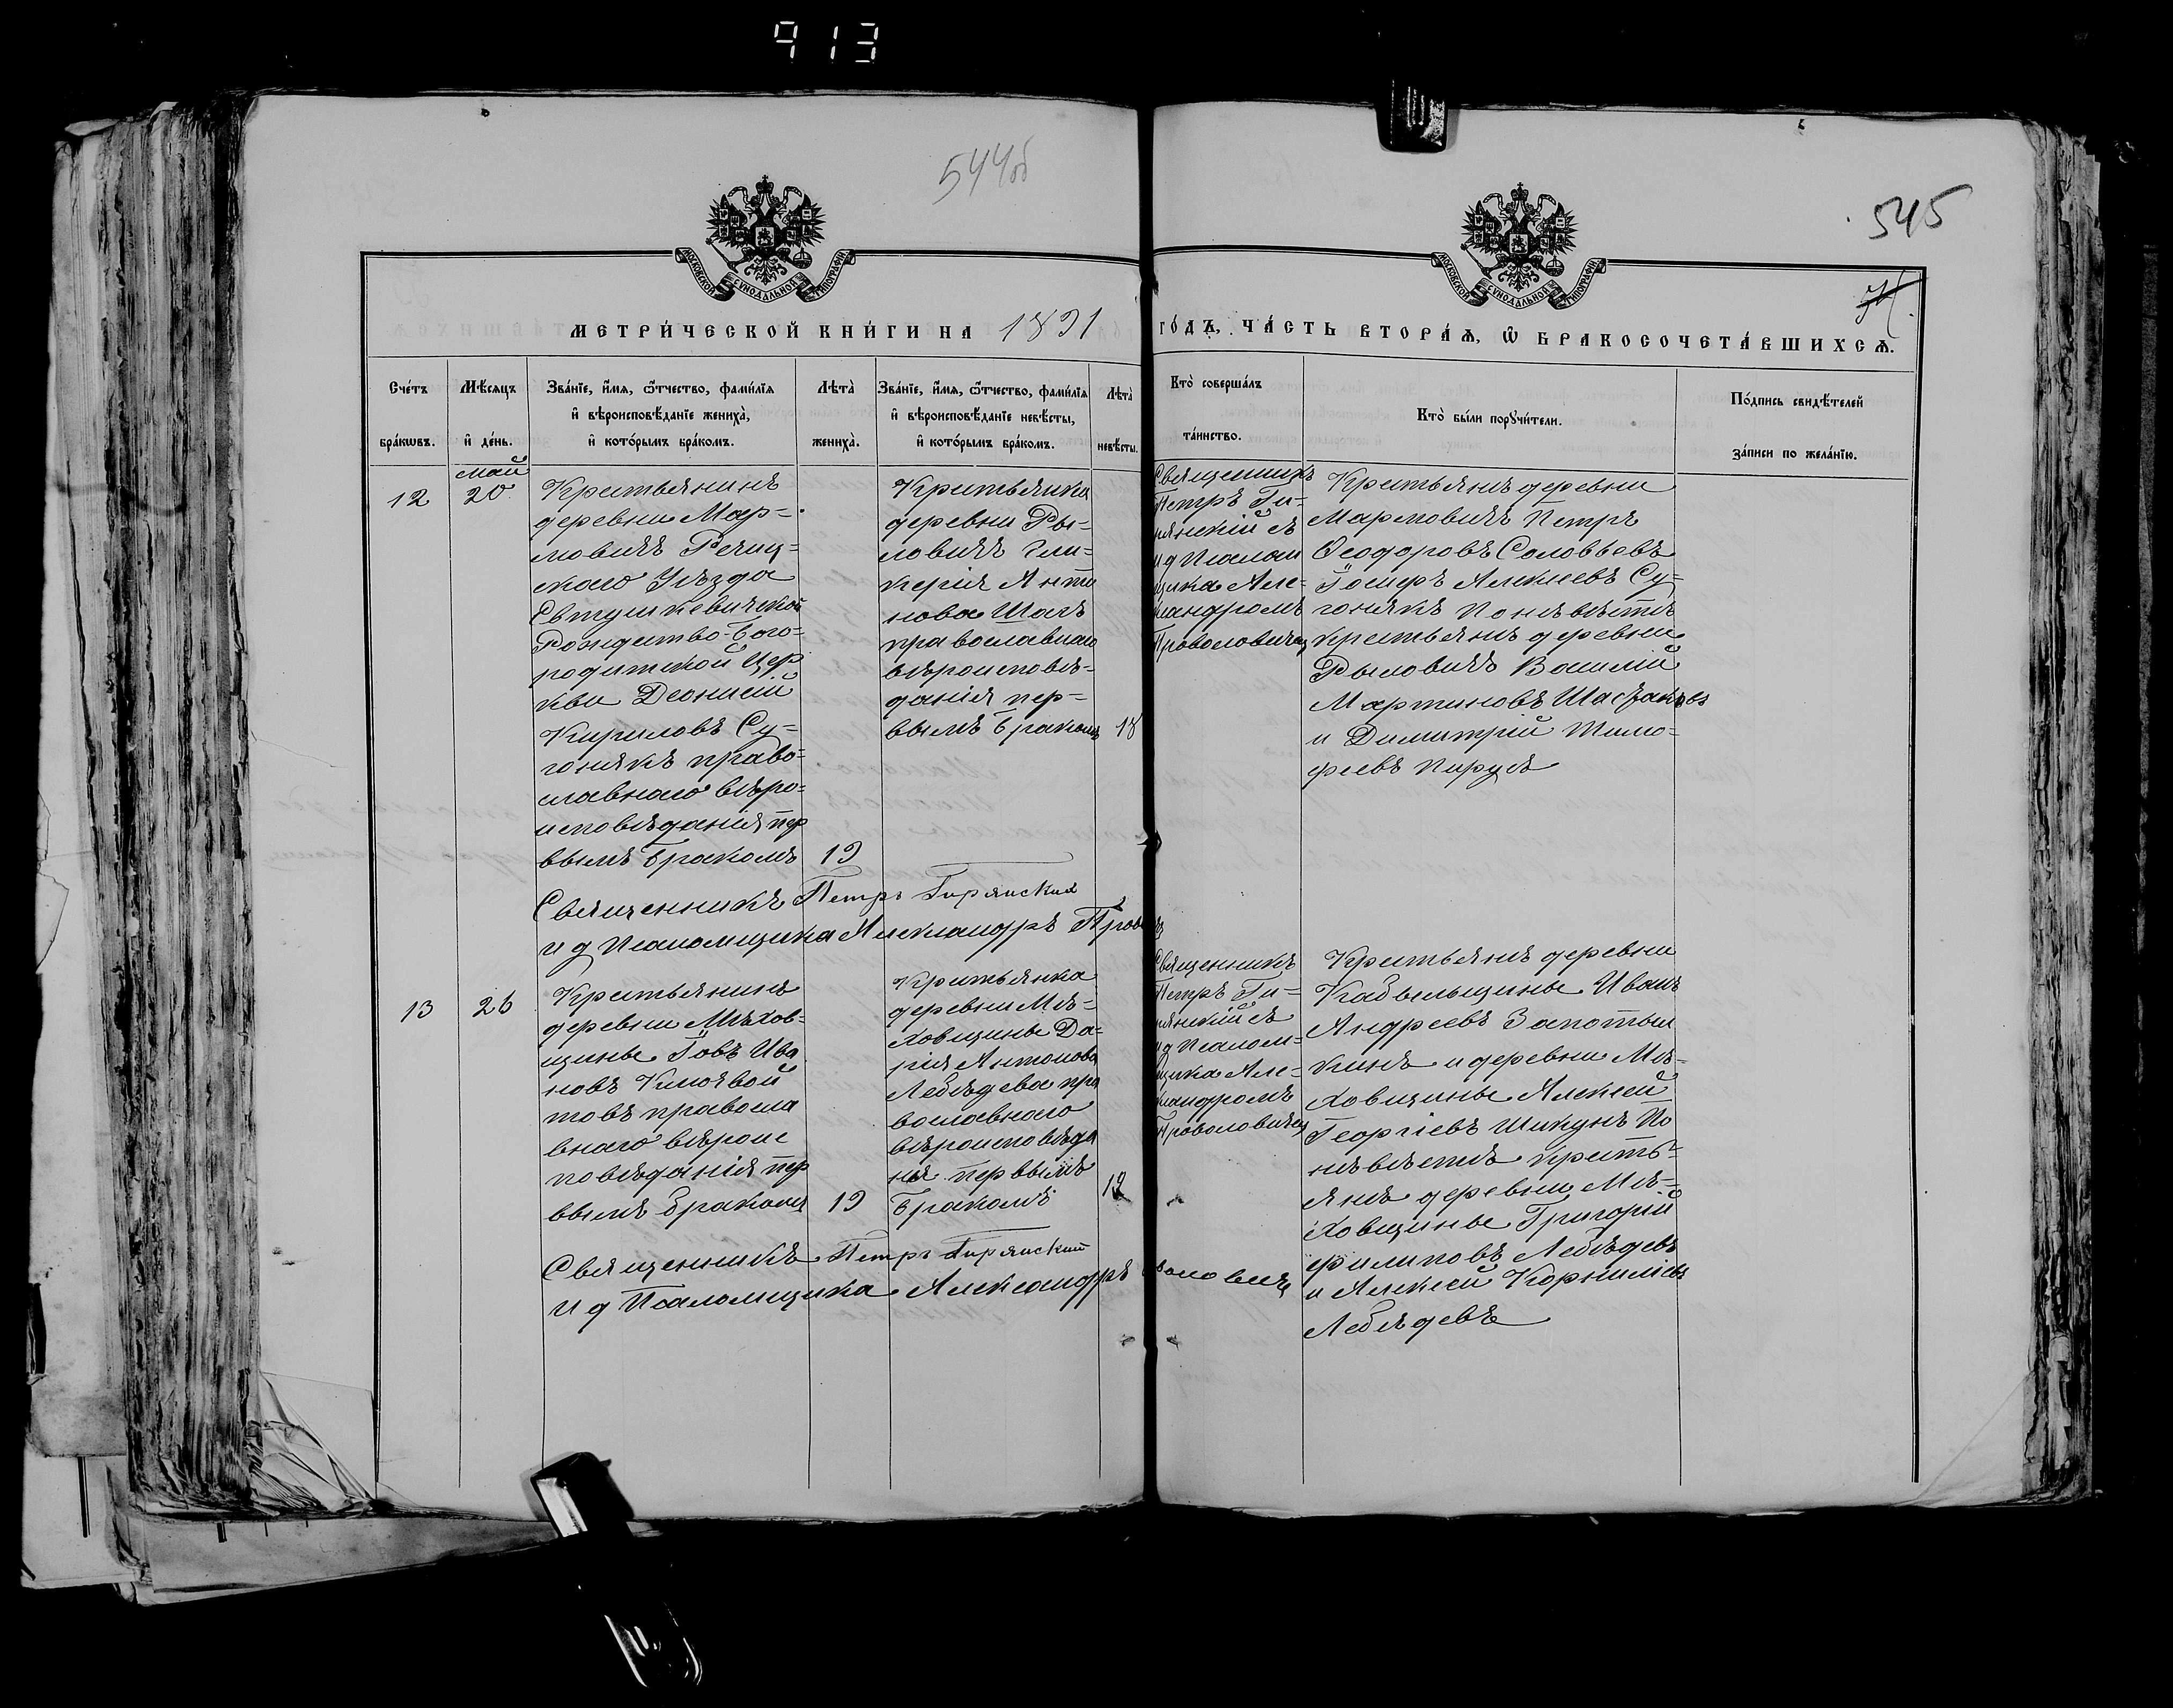 913
544об
545
МОСКОВСКОЙ СУНОДАЛЬНОЙ ТИПОГРАФІИ
МОСКОВСКОЙ СУНОДАЛЬНОЙ ТИПОГРАФІИ
МЕТРИ́ЧЕСКОЙ КНИ́ГИ НА 1891
ГО́ДЪ, ЧА́СТЬ ВТОРА́Ѧ, Ѽ БРАКОСОЧЕТА́ВШИХСѦ.
Сче́тъ
бра́кѡвъ.
Мѣ́сяцъ
и҆ де́нь.
Зва́нїе, и҆́мѧ, ѻ҆́тчество, фами́лїѧ
и҆ вѣроисповѣ́данїе жениха̀,
и҆ кото́рымъ бра́комъ.
Лѣта̀
жениха̀.
Зва́нїе, и҆́мѧ, ѻ҆́тчество, фами́лїѧ
и҆ вѣроисповѣ́данїе невѣ́сты,
и҆ кото́рымъ бра́комъ.
Лѣта̀
невѣ́сты.
Кто̀ соверша́лъ
та́инство.
Кто̀ бы́ли порꙋчи́тели.
По́дпись свидѣ́телей
за́писи по жела́нїю.
12
май
20
Крестьянинъ
деревни Мар-
мовичъ Речиц-
каго Уѣзда
Евтушкевичской
Рождество-Бого-
родитской Цер
кви Деонисій
Кириловъ Су-
гонякъ право-
славнаго вѣро-
исповѣданія пер
вымъ бракомъ
19
Крестьянка
деревни Ры-
ловичъ Гли-
керія Анти
нова
православнаго
вѣроисповѣ-
данія пер-
вымъ бракомъ
18
Священникъ
Петръ Ги-
рянскій съ
и д Псалом
щика Але-
ксандромъ
Проволовичемъ
Крестьянъ деревни
Мармовичъ Петръ
Ѳеодоровъ Соловьевъ
Алексеевъ Су-
гонякъ По невѣстѣ
крестьянъ деревни
Рыловичъ Василій
Мартиновъ
и Димитрій Тимо-
феевъ
Священникъ Петръ Гирянскій
и д Псаломщика Александръ
13
26
Крестьянинъ
деревни Мѣхов-
щины Іовъ Ива
новъ
товъ правосла
внаго вѣроис
повѣданія пер
вымъ бракомъ
19
Крестьянка
деревни Мѣ-
ховщины Да-
рія Антонова
Лебѣдева пра
вославнаго
вѣроисповѣда
нія первымъ
бракомъ
Священникъ
Петръ Ги-
рянскій съ
и д Псалом-
щика Але-
ксандромъ
Проволовичемъ
Крестьянъ деревни
Кабыльщины Иванъ
Андреевъ
и деревни Мѣ-
ховщины Алексей
Георгіевъ Шикунъ По
невѣстѣ кресть-
янъ деревни Мѣ-
ховщины Григорій
филиповъ Лебѣдевъ
и Алексей Корниліевъ
Лебѣдевъ
Священникъ Петръ Гирянскій
и д Псаломщика Александръ